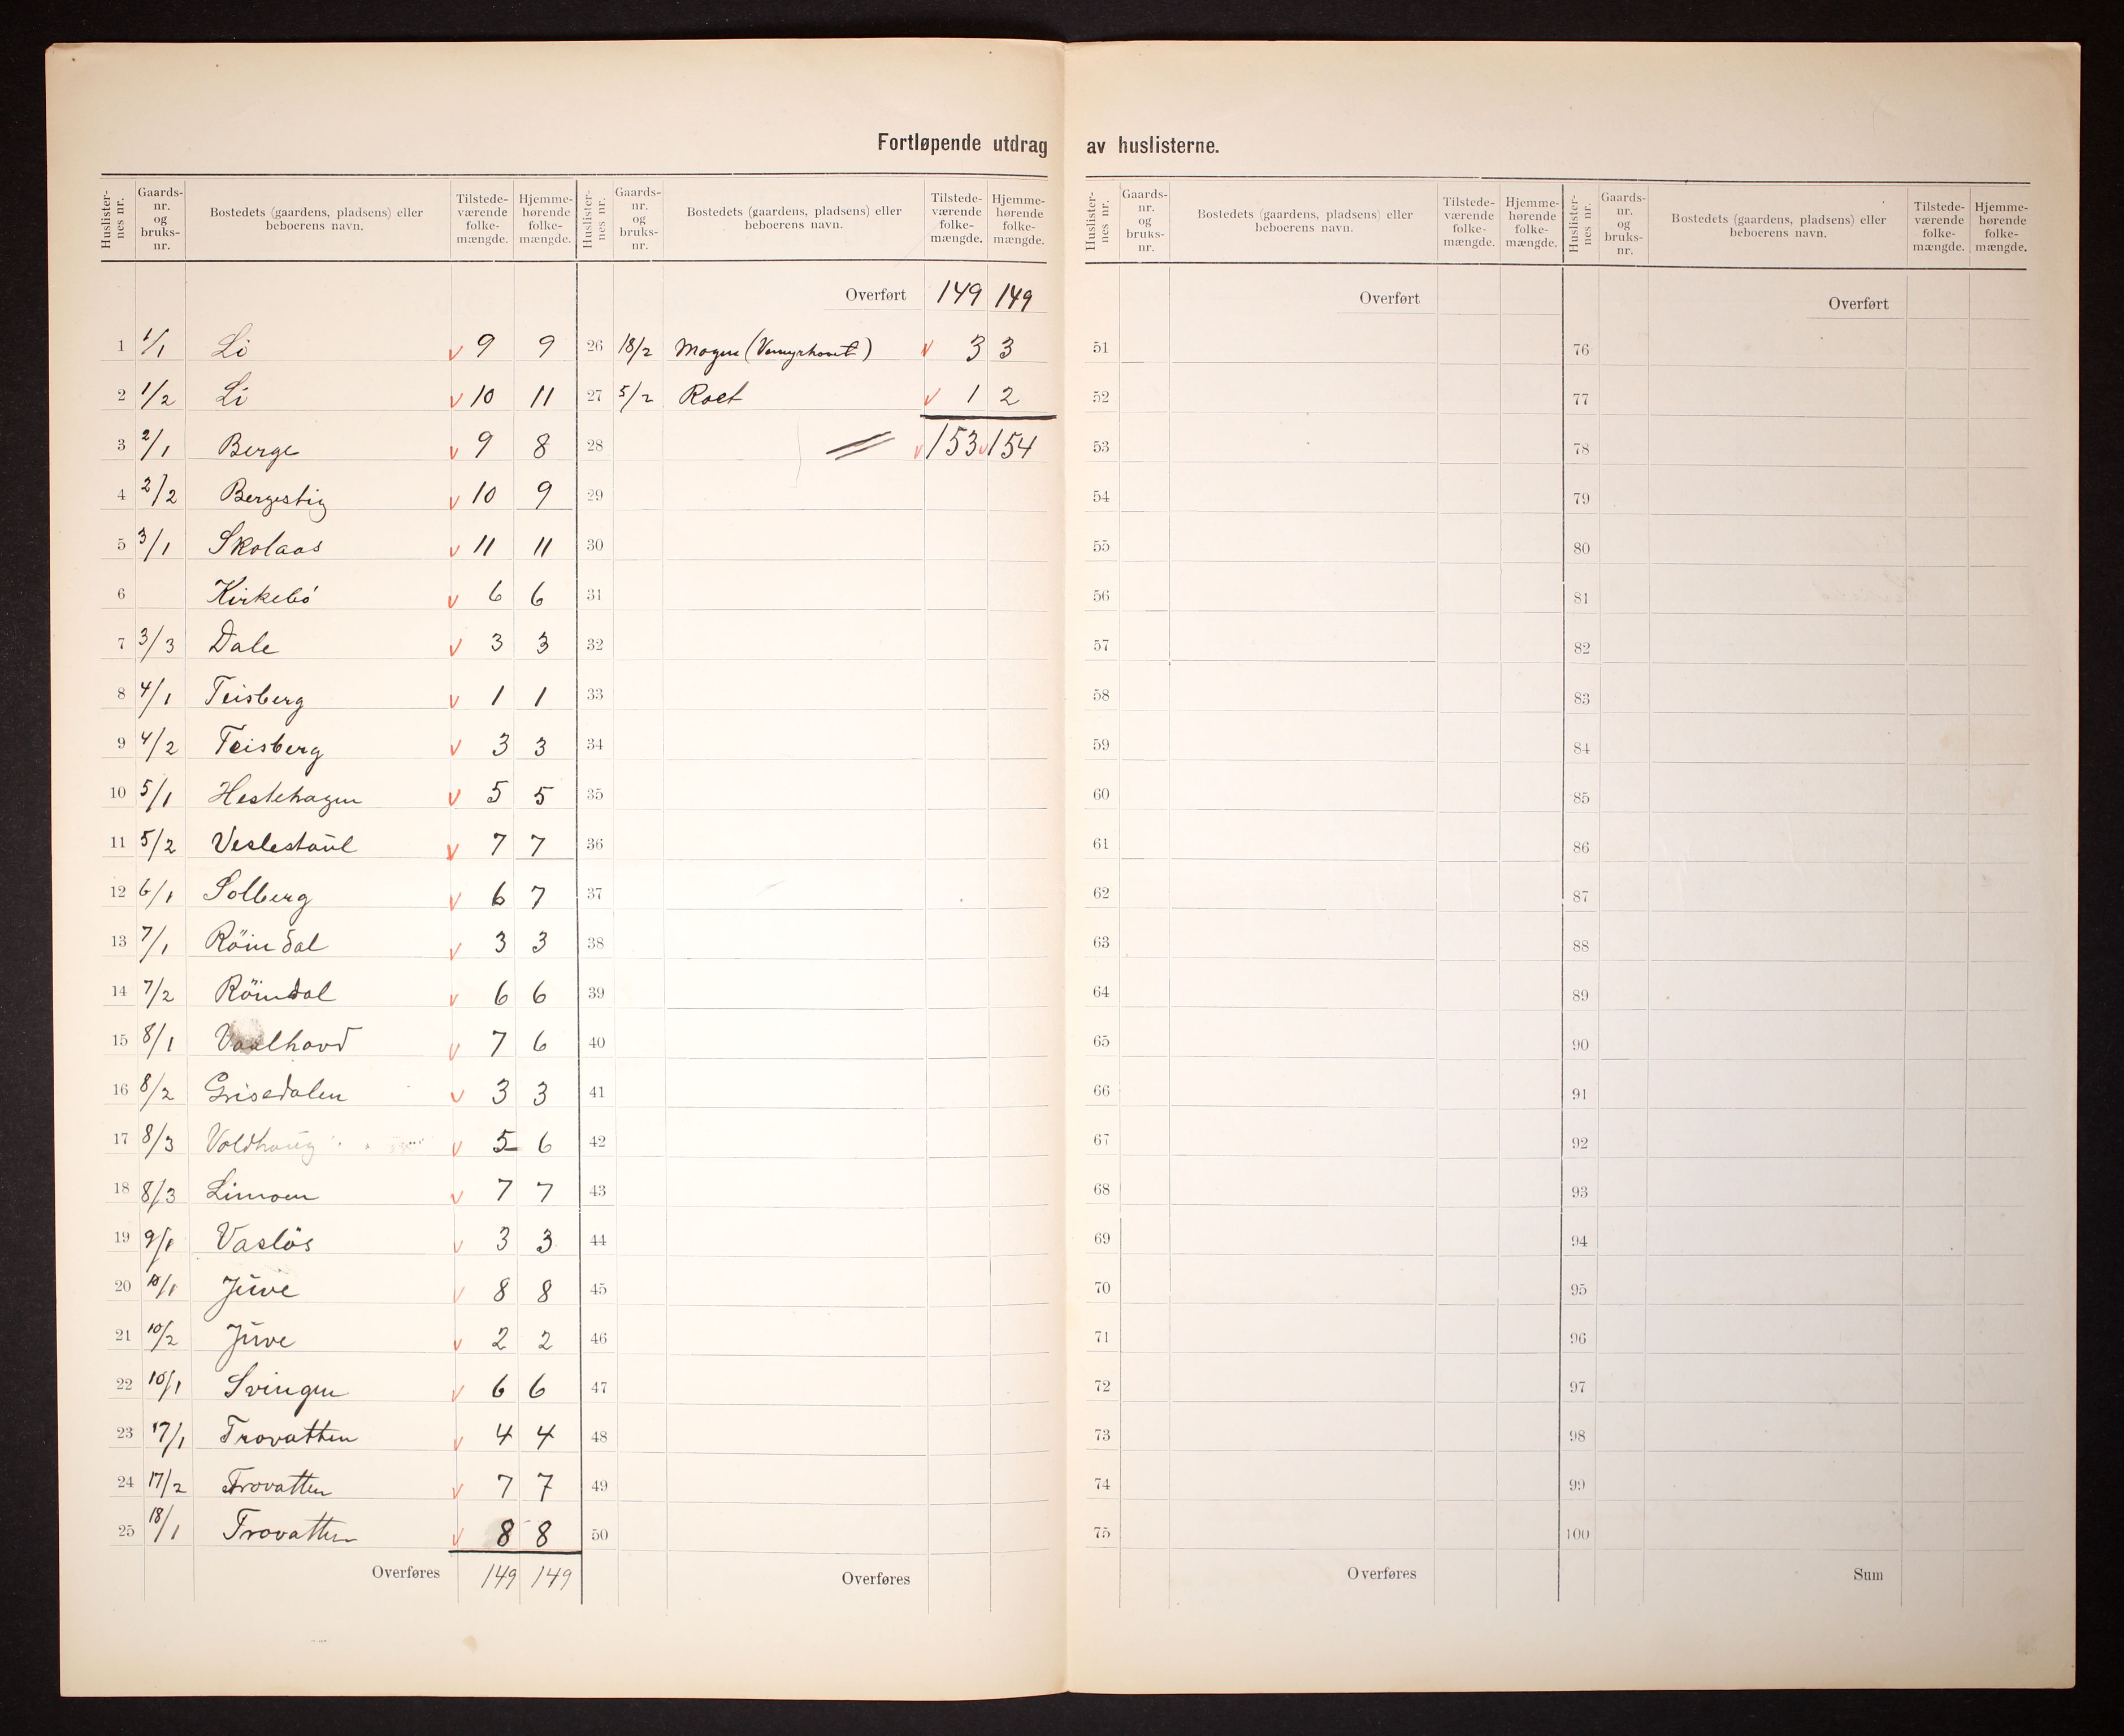 Fortløpende utdrag av huslisterne.
Huslister-nes nr. Gaards-nr. og bruks-nr. Bostedets (gaardens, pladsens) eller beboerens navn. Tilstede-værende folke-mængde. Hjemme-hørende folke-mængde.
1 1/1 Li v 9 9
2 1/2 Li v 10 11
3 2/1 Berge v 9 8
4 2/2 Bergestig v 10 9
5 3/1 Skolaas v 11 11
6 Kirkebö v 6 6
7 3/3 Dale v 3 3
8 4/1 Teisberg v 1 1
9 4/2 Teisberg v 3 3
10 5/1 Hestehagen v 5 5
11 5/2 Veslestaul v 7 7
12 6/1 Solberg v 6 7
13 7/1 Röindal v 3 3
14 7/2 Röindal v 6 6
15 8/1 Vaalhovd v 7 6
16 8/2 Grisedalen v 3 3
17 8/3 Voldhaug v 5 6
18 8/3 Limoen v 7 7
19 9/1 Vaslös v 3 3
20 10/1 Juve v 8 8
21 10/2 Juve v 2 2
22 10/1 Svingen v 6 6
23 17/1 Trovatten v 4 4
24 17/2 Trovatten v 7 7
25 18/1 Trovatten v 8 8
Overføres 149 149
Huslister-nes nr. Gaards-nr. og bruks-nr. Bostedets (gaardens, pladsens) eller beboerens navn. Tilstede-værende folke-mængde. Hjemme-hørende folke-mængde.
Overført 149 149
26 18/2 Mogen v 3 3
27 5/2 Roet v 1 2
28 v 153 v 154
29
30
31
32
33
34
35
36
37
38
39
40
41
42
43
44
45
46
47
48
49
50
Overføres
Huslister-nes nr. Gaards-nr. og bruks-nr. Bostedets (gaardens, pladsens) eller beboerens navn. Tilstede-værende folke-mængde. Hjemme-hørende folke-mængde.
Overført
51
52
53
54
55
56
57
58
59
60
61
62
63
64
65
66
67
68
69
70
71
72
73
74
75
Overføres
Huslister-nes nr. Gaards-nr. og bruks-nr. Bostedets (gaardens, pladsens) eller beboerens navn. Tilstede-værende folke-mængde. Hjemme-hørende folke-mængde.
Overført
76
77
78
79
80
81
82
83
84
85
86
87
88
89
90
91
92
93
94
95
96
97
98
99
100
Sum